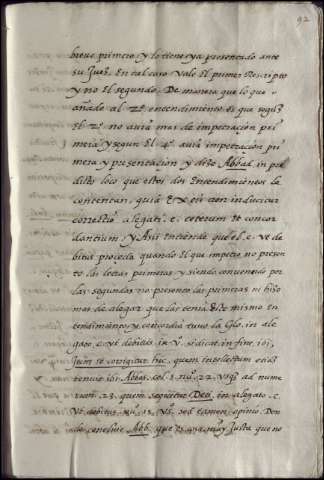 92
breve primero y lo tiene ya presentado ante
su Juez. En tal caso vale El primer Rescripto
y no El segundo. De manera que lo que
añade al 2º entendimiento es que según
El 2º no avia mas de impetración pri
mera y segun El 4º avia impetración pri
mera y presentación y dize Abbad in
loco, que estos dos Entendimientos la
contentan, quia Ex eis
alegati. c. ceterum te concor
dantium y Assi entiende que el. c. ut de
bitus proceda quando El que impetro no presen
to las letras primeras y siendo convenido por
las segundas no presento las primeras ni hizo
mas de alegar que las tenia Este mismo en
tendimiento y concordia tuvo la Glo. in ale
gato. c. ut debitus in V. in fine, ibi,
quem intellectum etiam
tenuit ibi Abbas. col. 1. nu. 22. usque ad nume
rum. 23. quem sequitur Deci. in alegato. c.
ut debitus. nu. 13. Vs. sed tamen, opinio. Don
de concluye Abb. que es una muy Justa que no